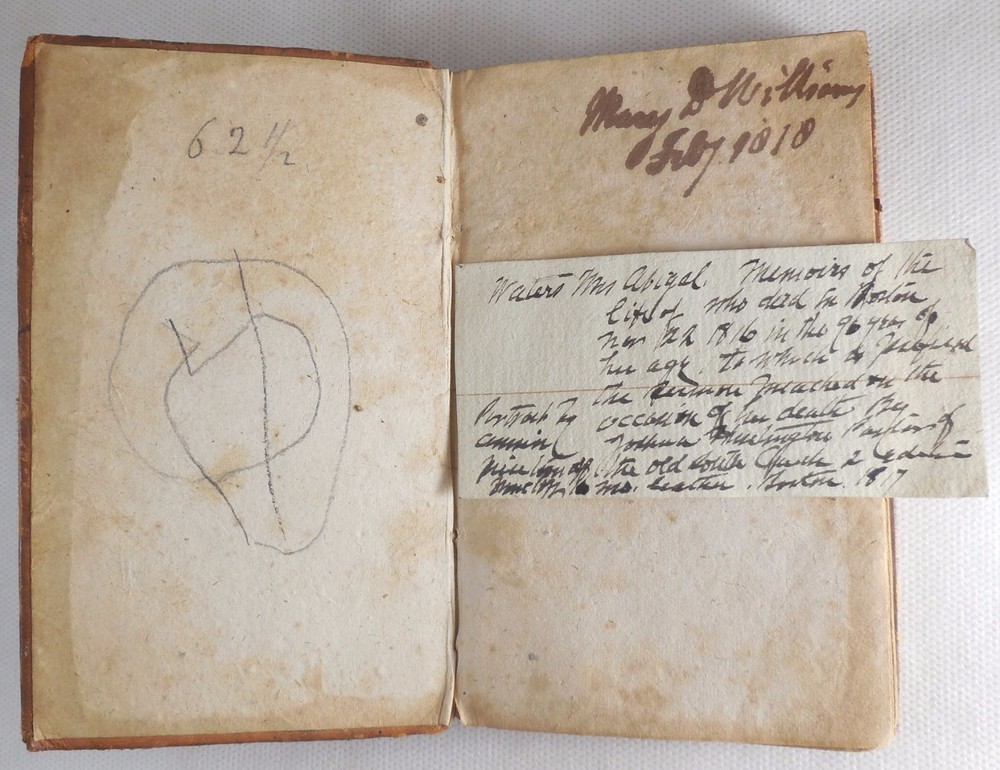 6 2 1/2
Mary D Williams
Feby 1818
Waters Mrs Abigal. Memoirs of the
life of who died in Boston
Nov 22 1816 in the 96 year of
her age, to which is prefixed
the Sermon preached on the
occasion of her death By
Joshua Huntington Pastor of
the old South Church 2 Edition
leather. Boston. 1817
Portrait by